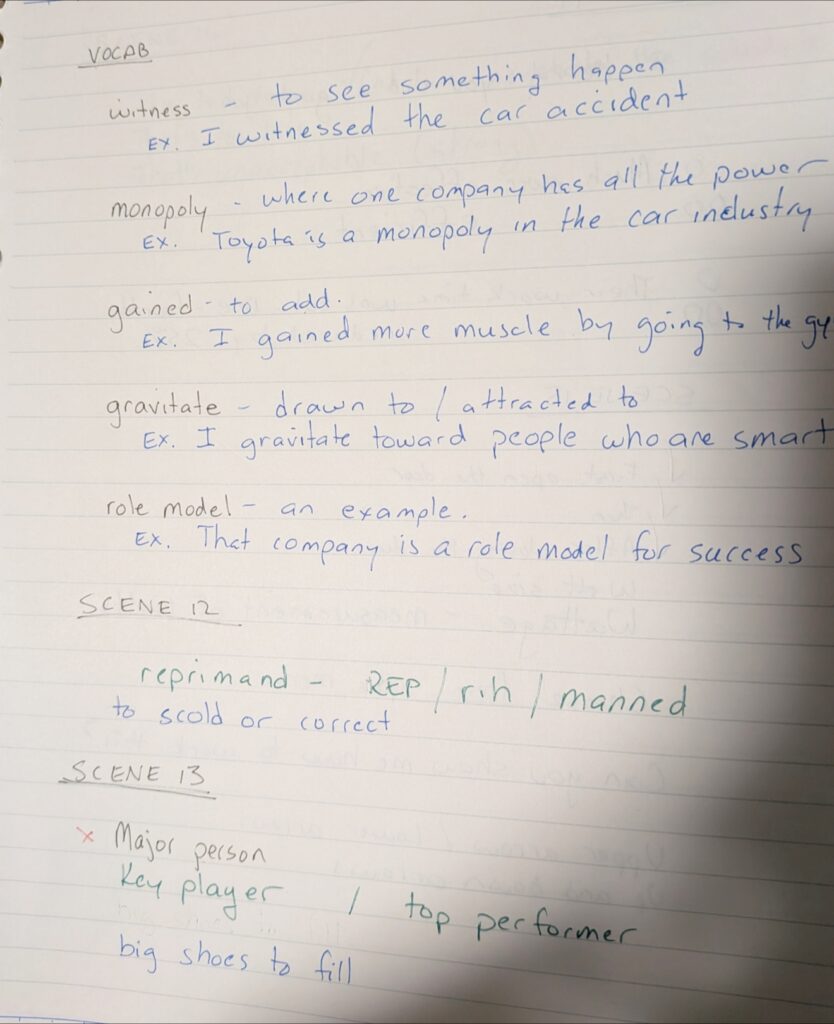 VOCAB
witness - to see something happen
Ex. I witnessed the car accident
monopoly - where one company has all the power
Ex. Toyota is a monopoly in the car industry
gained - to add.
Ex. I gained more muscle by going to the gy
gravitate - drawn to / attracted to
Ex. I gravitate toward people who are smart
role model - an example.
Ex. That company is a role model for success
SCENE 12
reprimand - REP / rih / manned
to scold or correct
SCENE 13
x Major person
Key player / top performer
big shoes to fill